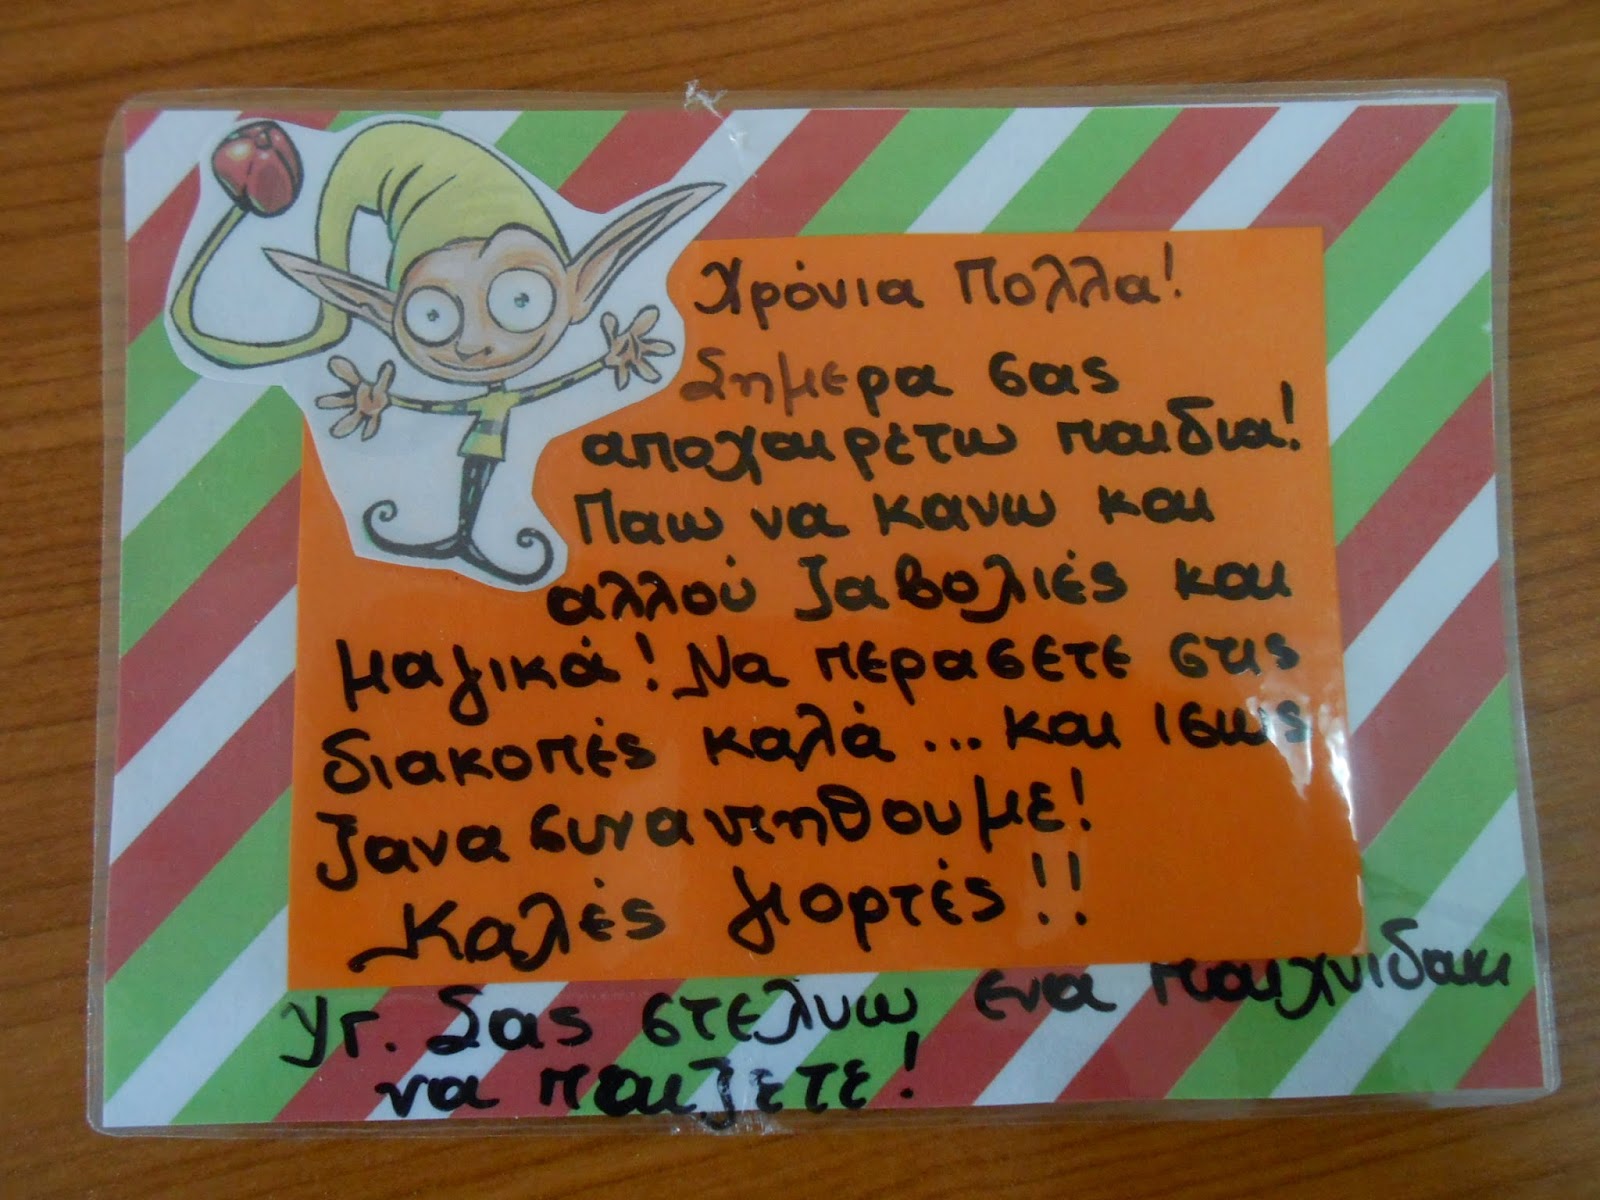 Χρόνια Πολλα!
Σημερα σας
αποχαιρέτω παιδια!
Παω να κανω και
αλλού ζαβολιές και
μαγικά! Να περασετε στις
διακοπές καλά... και ισως
ξανασυναντηθουμε!
Καλές γιορτές!!
Υγ. Σας στελνω ενα παιχνιδακι
να παιζετε!